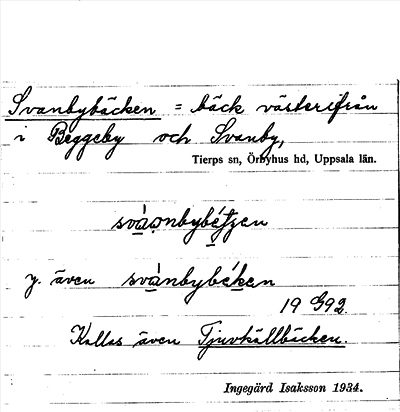 Svanbybäcken = bäck västerifrån
i Beggeby och Svanby,
Tierps sn, Örbyhus hd, Uppsala län.
y. även svànbybéken
19 G92
Kallas även Tjuvkällbäcken.
Ingegärd Isaksson 1934.